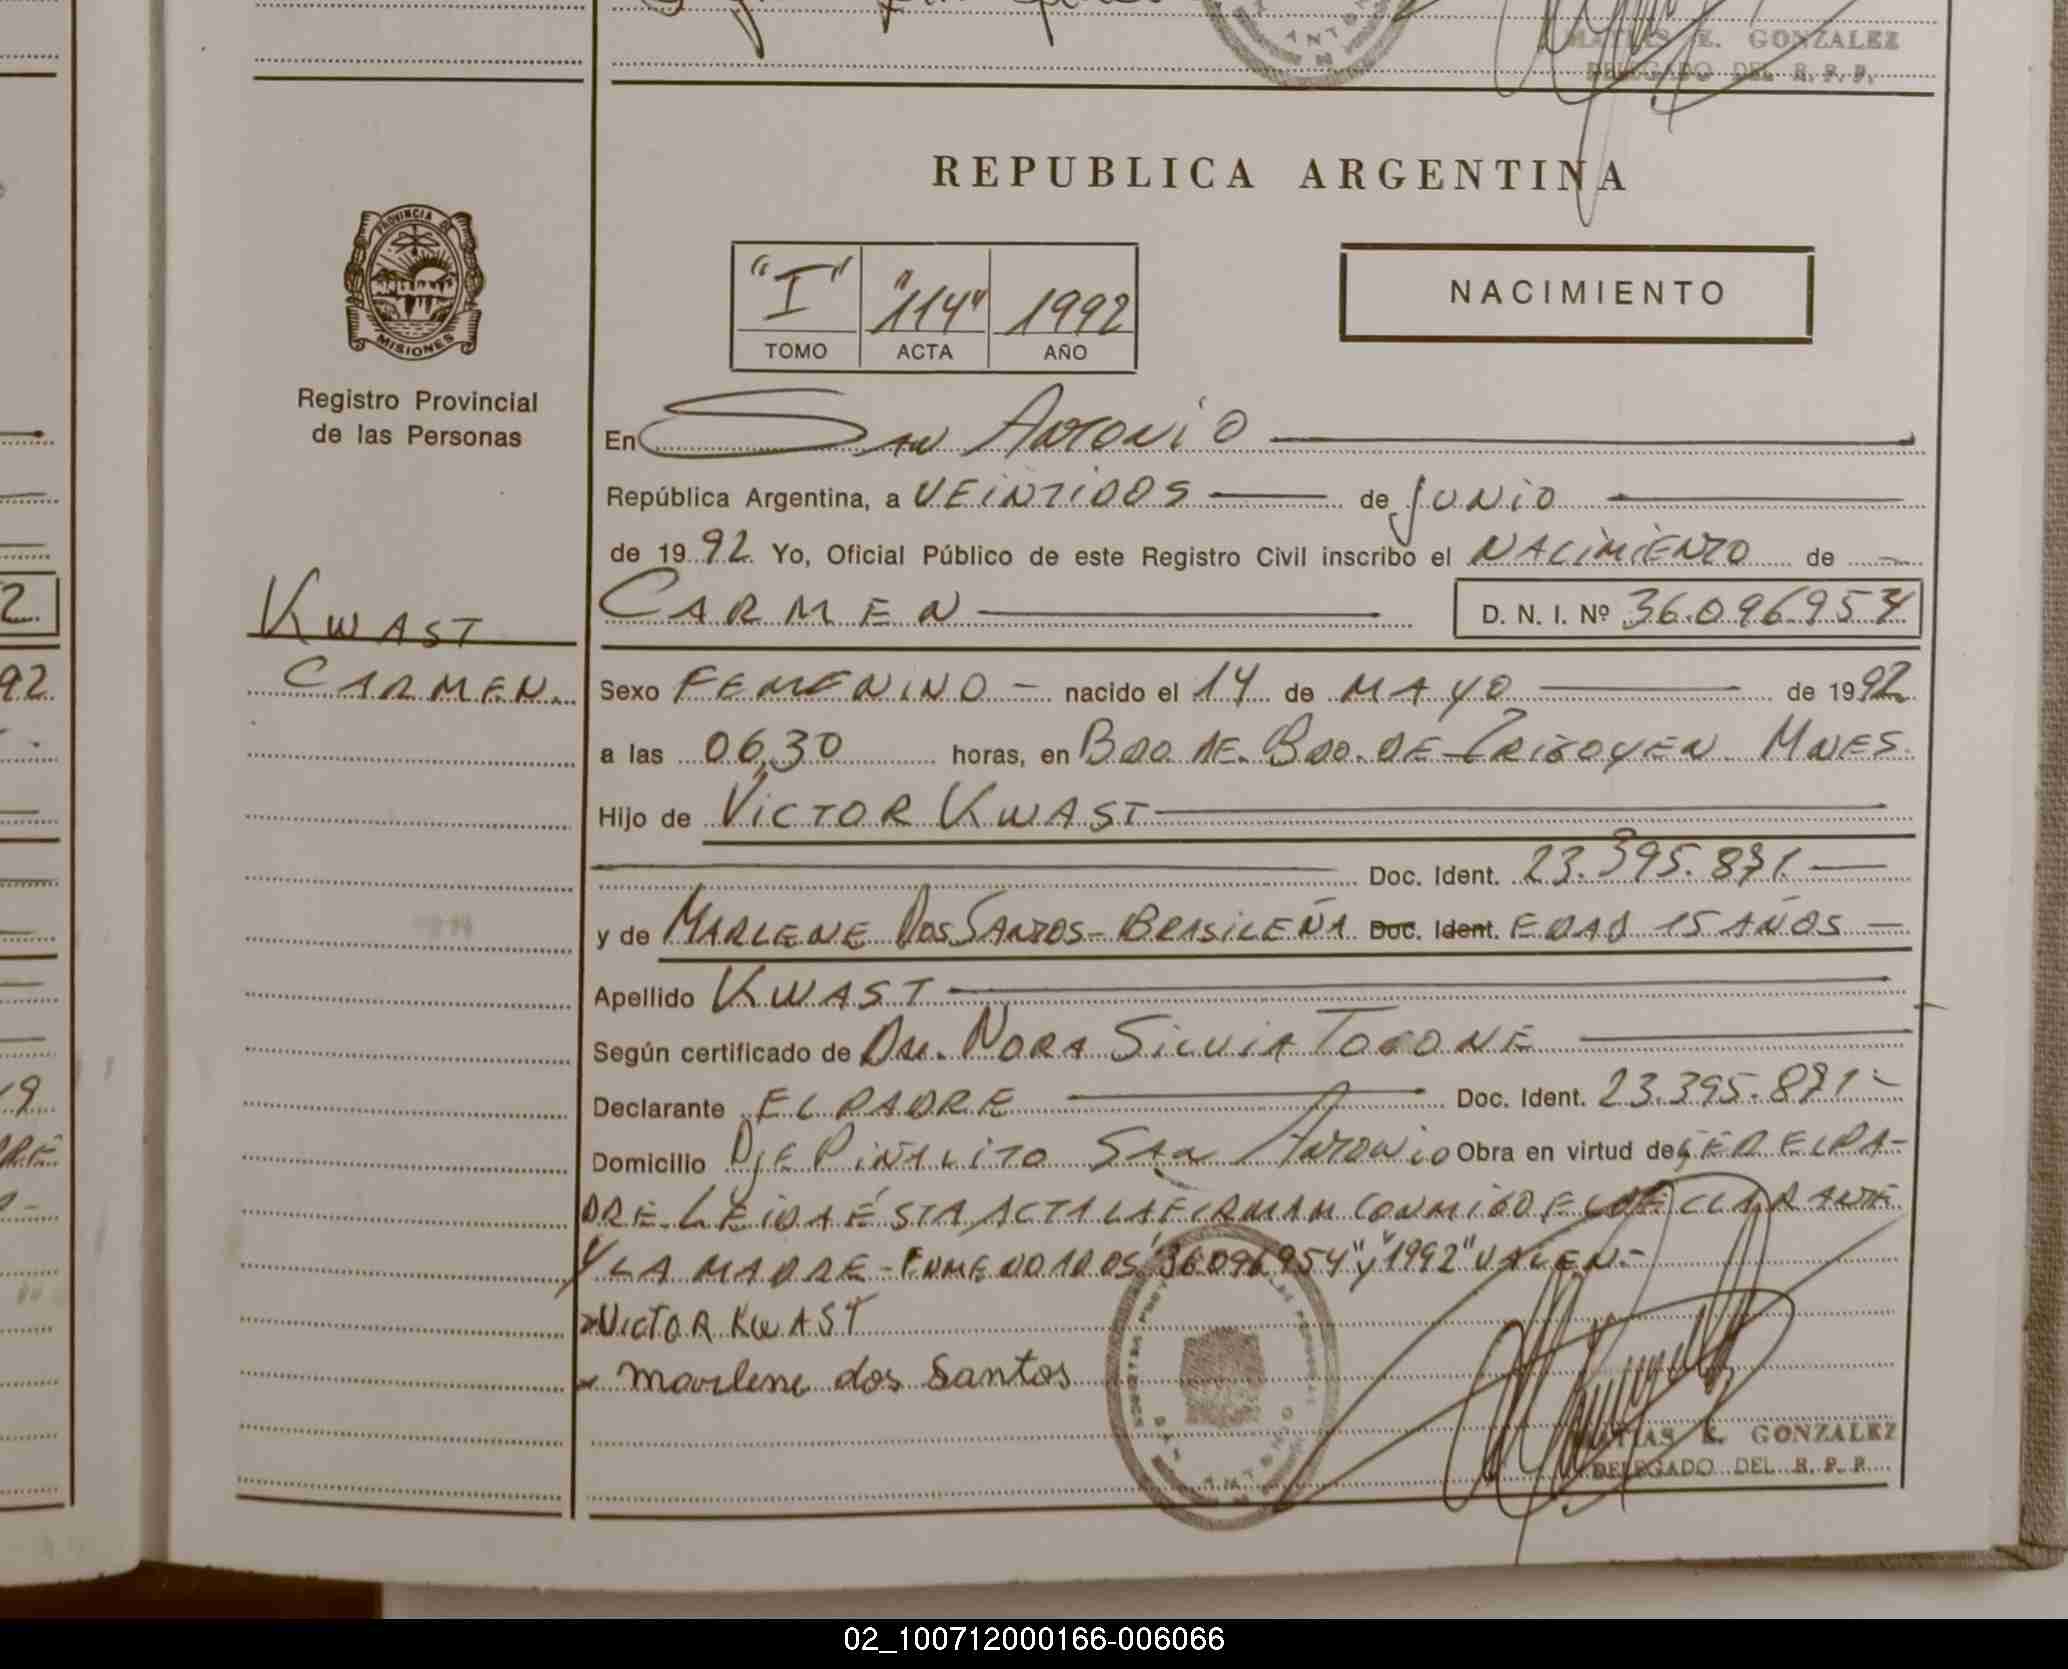 MATIAS E. GONZALEZ
DELEGADO DEL R. P. P.
REPUBLICA ARGENTINA
PROVINCIA
MISIONES
Registro Provincial
de las Personas
"I" "114" 1992
TOMO ACTA AÑO
NACIMIENTO
En San Antonio
República Argentina, a VEINTIDOS de JUNIO
de 1992 Yo, Oficial Público de este Registro Civil inscribo el NACIMIENTO de
KWAST
CARMEN D. N. I. Nº 36.096.954
CARMEN.
Sexo FEMENINO - nacido el 14 de MAYO de 1992
a las 06,30 horas, en BDO. DE. BDO. DE IRIGOYEN MNES.
Hijo de VICTOR KWAST
Doc. Ident. 23.395.871.
y de MARLENE DOS SANTOS - BRASILEÑA Doc. Ident. EDAD 15 AÑOS
Apellido KWAST
Según certificado de DRA. NORA SILVIA
Declarante EL PADRE Doc. Ident. 23.395.871.-
Domicilio PJE PIÑALITO SAN ANTONIO Obra en virtud de SER EL PA-
DRE. LEIDA ÉSTA ACTA LA FIRMAN CONMIGO EL DECLARANTE
Y LA MADRE - ENMENDADOS "36096954" y "1992" VALEN.-
VICTOR KWAST
marlene dos Santos
MATIAS E. GONZALEZ
DELEGADO DEL R. P. P.
02_100712000166-006066